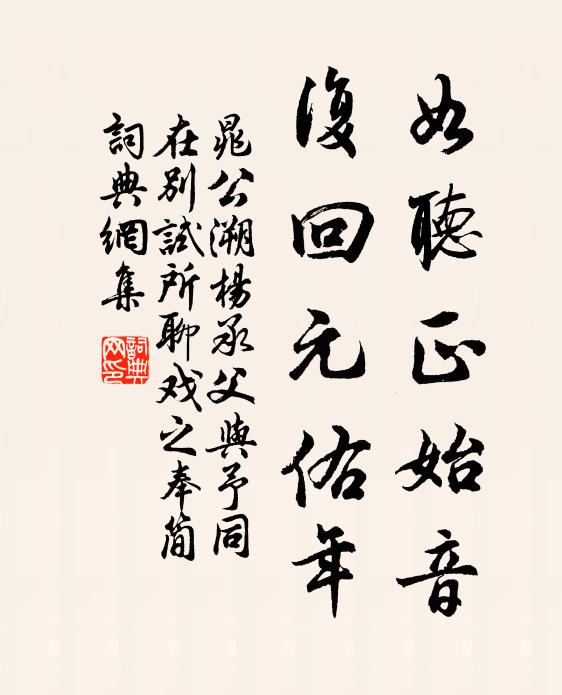 如聽正始音
復回元佑年
晁公溯楊承父與予同
在別試所聊戏之奉简
詞典網集
詞典网印